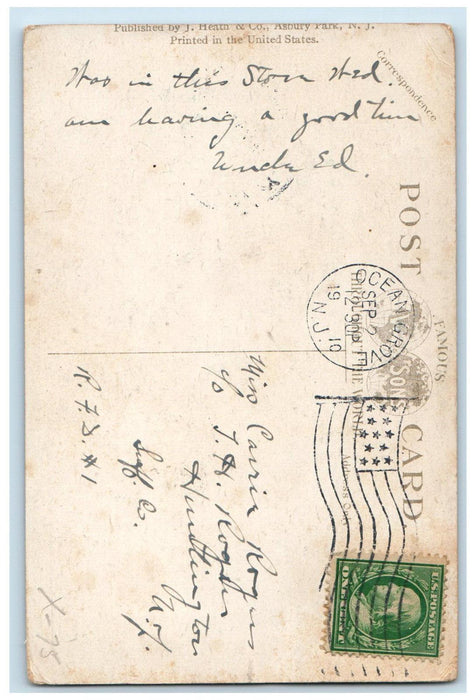 Published by J. Heath & Co., Asbury Park, N. J.
Printed in the United States.
Correspondence
Was in this Store Wed.
am having a good time
Uncle Ed.
POST CARD
FAMOUS
THROUGHOUT THE WORLD
OCEAN GROVE
SEP 2
12 30P
19 10
N.J.
Miss Carrie Rogers
c/o J. H. Rogers
Huntington
N.Y.
Suff. Co.
R.F.D. #1
U.S. POSTAGE
ONE CENT
X-75